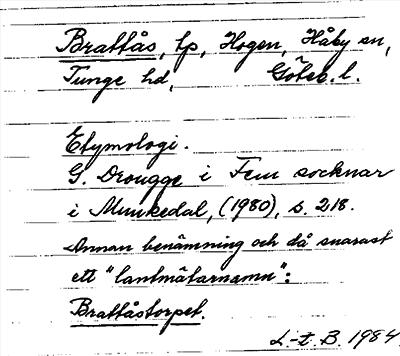 Brattås, tp, Hogen, Håby sn,
Tunge hd, Göteb. l.
Etymologi.
G. Drougge i Fem socknar
i Munkedal, (1980), s. 218.
Annan benämning och då snarast
ett "lantmätarnamn":
Brattåstorpet.
L-t B. 1984